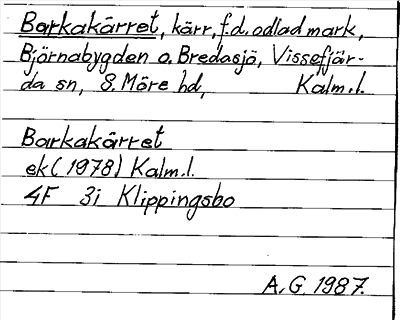 Barkakärret, kärr, f.d. odlad mark,
Björnabygden o. Bredasjö, Vissefjär-
da sn, S. Möre hd, Kalm.l.
Barkakärret
ek (1978) Kalm.l.
4F 3i Klippingsbo
A.G. 1987.